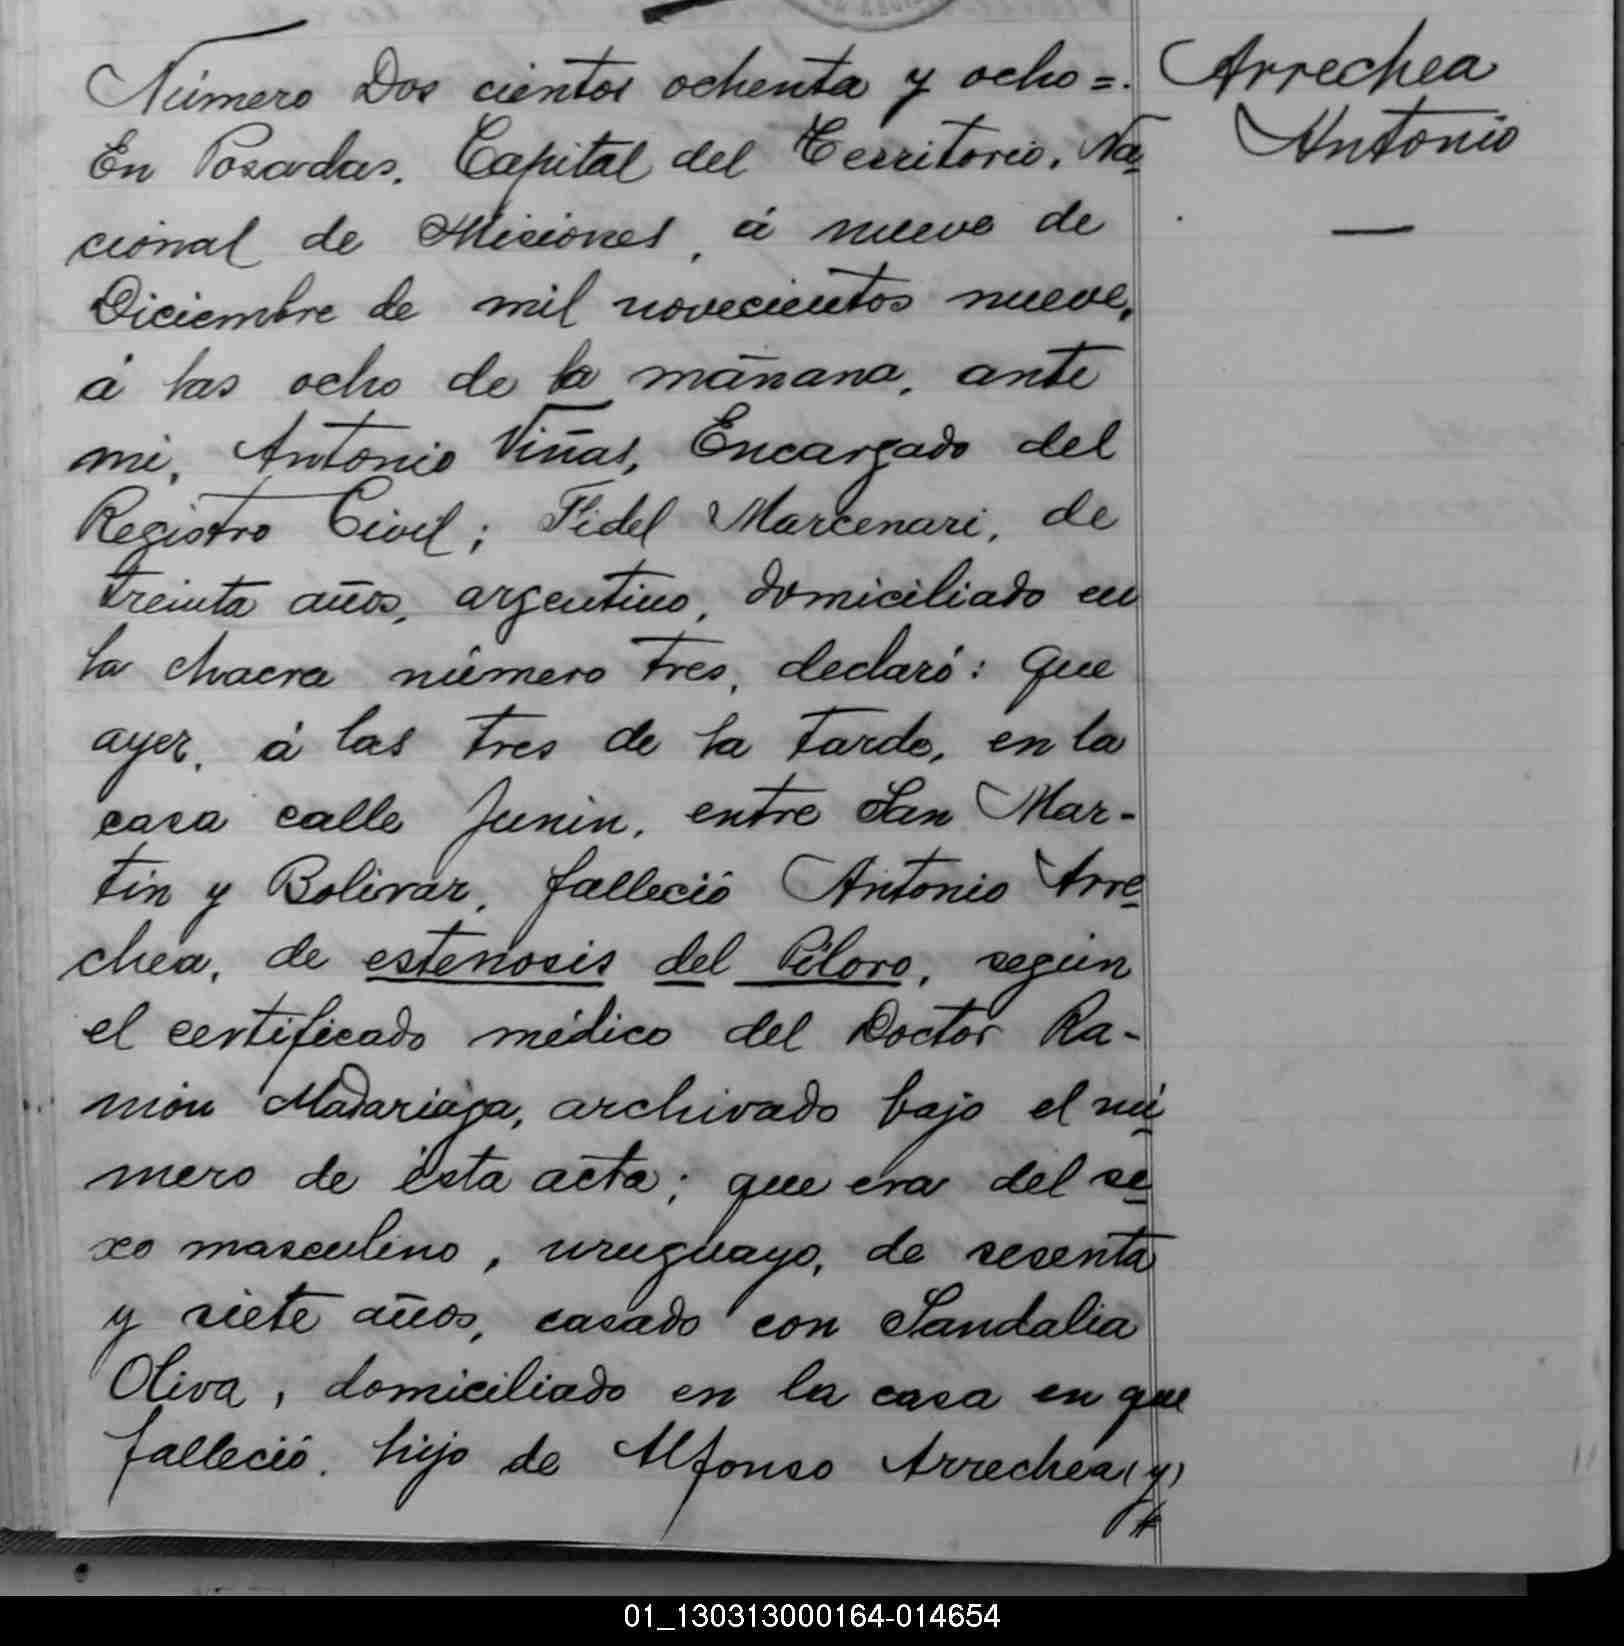 Número Dos cientos ochenta y ocho =.
En Posadas, Capital del Territorio, Na-
cional de Misiones, á nueve de
Diciembre de mil novecientos nueve,
á las ocho de la mañana, ante
mi, Antonio Viñas, Encargado del
Registro Civil; Fidel Marcenari, de
treinta años, argentino, domiciliado en
la chacra número tres, declaró: Que
ayer, á las tres de la tarde, en la
casa calle Junin, entre San Mar-
tin y Bolivar, falleció Antonio Arre-
chea, de estenosis del Píloro, según
el certificado médico del Doctor Ra-
món Madariaga, archivado bajo el nú-
mero de ésta acta; que era del se-
xo masculino, uruguayo, de sesenta
y siete años, casado con Sandalia
Oliva, domiciliado en la casa en que
falleció, hijo de Alfonso Arrechea (y)
Arrechea
Antonio
01_130313000164-014654